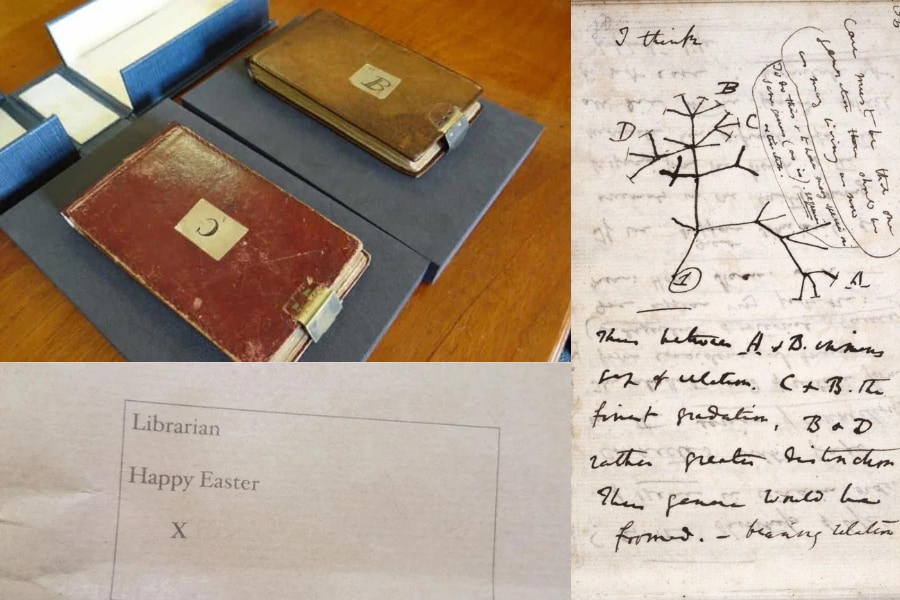 B
C
Librarian
Happy Easter
X
I think
B
C
D
A
1
Case must be that one
generation then should be
as many living as now
To do this & to have many species in
same genus (as is). requires
extinction.
Thus between A & B. immens
gap of relation. C & B. the
finest gradation, B & D
rather greater distinction
Thus genera would be
formed. — bearing relation